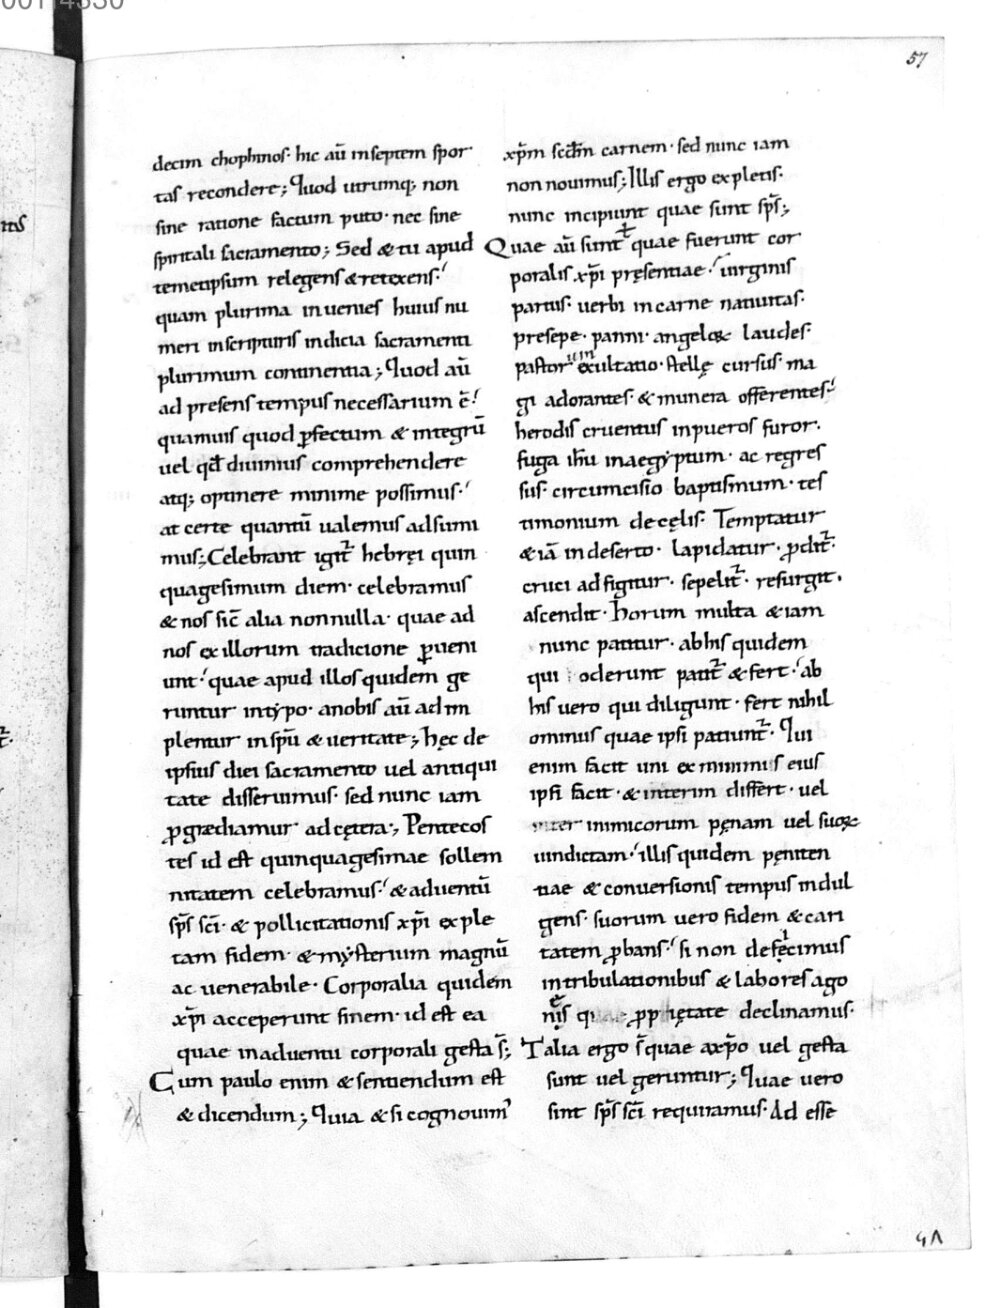 57
decim chophinos· hic aū inseptem spor·
tas recondere; Quod utrumq; non
sine ratione factum puto· nec sine
spiritali sacramento; Sed & tu apud
temetipsum relegens & retexens·
quam plurima inuenies huius nu
meri inscripturis indicia sacramenti
plurimum continentia; Quod aū
ad presens tempus necessarium ē·
quamuis quod ꝑfectum & integrū
uel qd̄ diuinius comprehendere
atq; optinere minime possimus·
at certe quantū ualemus adsumi
mus; Celebrant igit̄ hebrei quin
quagesimum diem· celebramus
& nos sic̄ alia nonnulla· quae ad
nos ex illorum tradicione ꝑueni
unt· quae apud illos quidem ge
runtur intypo· anobis aū adim
plentur inspū & ueritate; hęc de
ipsius diei sacramento uel antiqui
tate disseruimus· sed nunc iam
ꝓgrædiamur ad cętera; Pentecos
tes id est quinquagesimae sollem
nitatem celebramus· & aduentū
sp̄s sc̄i· & pollicitationis xp̄i exple
tam fidem· & mysterium magnū
ac uenerabile· Corporalia quidem
xp̄i acceperunt finem· id est ea
quae inaduentu corporali gesta s̄;
Cum paulo enim & sentiendum est
& dicendum; Quia & si cognouim'
xp̄m scd̄m carnem· sed nunc iam
non nouimus; Illis ergo expletis·
nunc incipiunt quae sunt sp̄s;
Quae aū sint quae fuerunt cor
poralis xp̄i pręsentiae· uirginis
partus· uerbi incarne natiuitas·
presepe· panni· angeloꝝ laudes·
pastorum exultatio· stellę cursus· ma
gi adorantes· & munera offerentes·
herodis cruentus inpueros furor·
fuga ihu inaegyptum· ac regres
sus· circumcisio baptismum· tes
timonium decęlis· Temptatur
& iā indeserto· lapidatur· ꝓdit̄·
cruci adfigitur· sepelit̄· resurgit·
ascendit· horum multa & iam
nunc patitur· abhis quidem
qui oderunt patit̄ & fert· ab
his uero qui diligunt· fert nihil
ominus quae ipsi patiunt̄· Qui
enim facit uni ex minimis eius
ipsi facit· & interim differt· uel
inter inimicorum pęnam uel suoꝝ
uindictam· illis quidem pęniten
tiae & conuersionis tempus indul
gens· suorum uero fidem & cari
tatem ꝓbans· si non defecimus
intribulationibus & labores ago
nis ꝓpphętate declinamus·
Talia ergo s̄ quae axp̄o uel gesta
sunt uel geruntur; Quae uero
sint sp̄s sc̄i requiramus· Ad esse